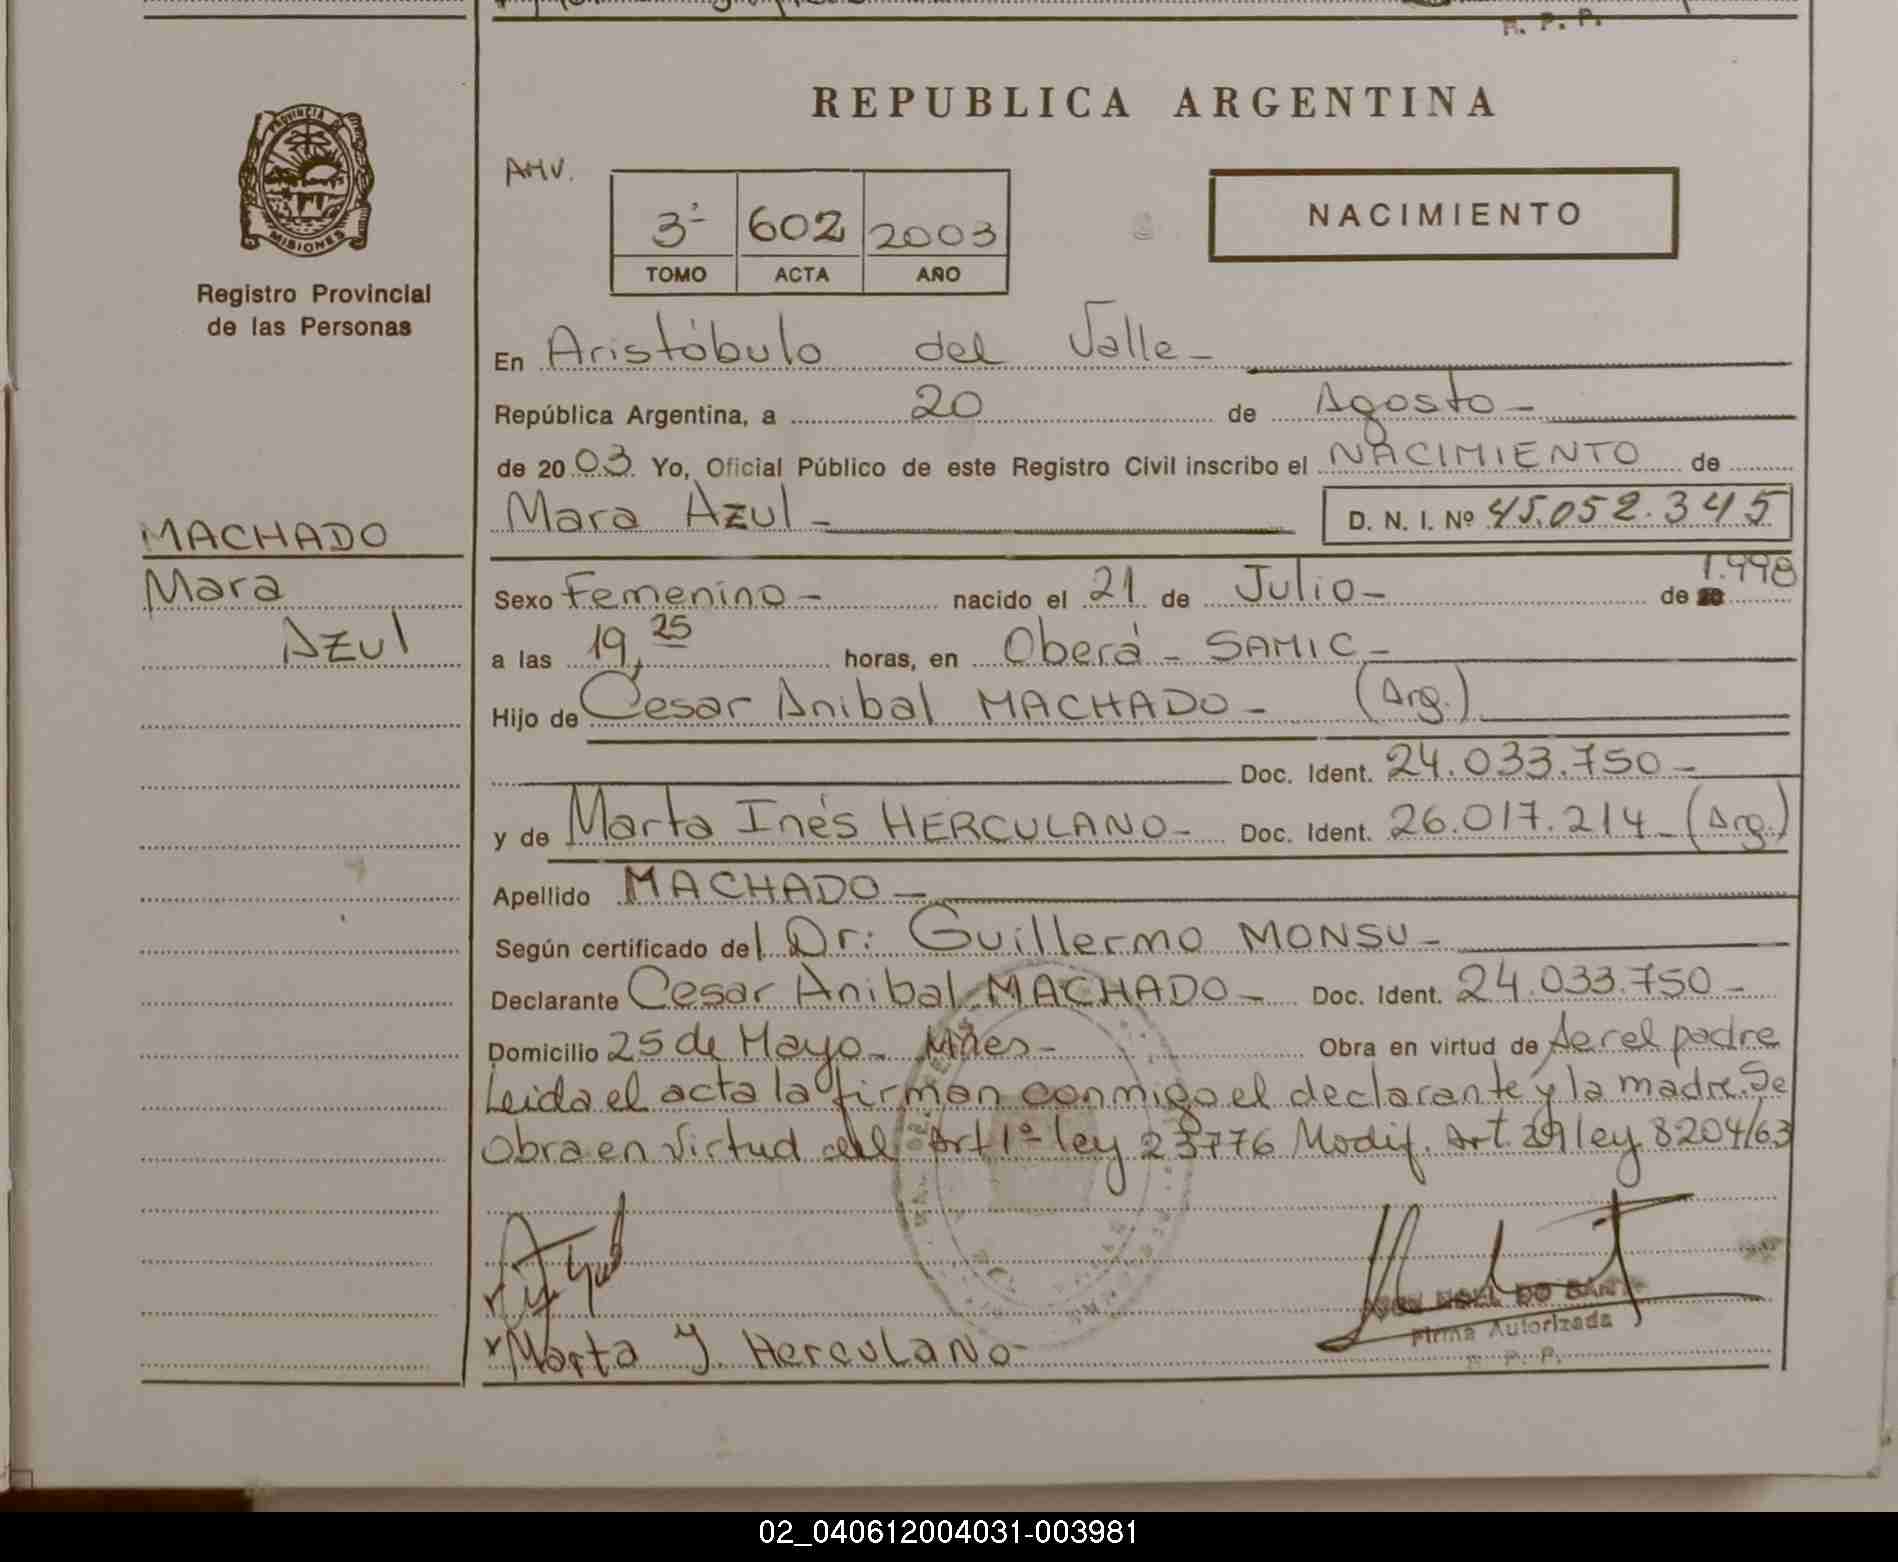 R. P. P.
REPUBLICA ARGENTINA
PROVINCIA DE
MISIONES
Registro Provincial
de las Personas
AHV.
3ª 602 2003
TOMO ACTA AÑO
NACIMIENTO
En Aristóbulo del Valle -
República Argentina, a 20 de Agosto -
de 20 03 Yo, Oficial Público de este Registro Civil inscribo el NACIMIENTO de
Mara Azul - D. N. I. Nº 45.052.345
MACHADO
Mara
Azul
Sexo Femenino - nacido el 21 de Julio - de 1.998
a las 19,25 horas, en Oberá - SAMIC -
Hijo de Cesar Anibal MACHADO - (Arg.)
Doc. Ident. 24.033.750 -
y de Marta Inés HERCULANO - Doc. Ident. 26.017.214 - (Arg.)
Apellido MACHADO -
Según certificado del Dr: Guillermo MONSU -
Declarante Cesar Anibal MACHADO - Doc. Ident. 24.033.750 -
Domicilio 25 de Mayo - Mnes - Obra en virtud de ser el padre
Leida el acta la firman conmigo el declarante y la madre. Se
obra en virtud del Art 1º ley 23776 Modif. Art. 29 ley 8204/63
Marta Y. Herculano
Firma Autorizada
R. P. P.
02_040612004031-003981